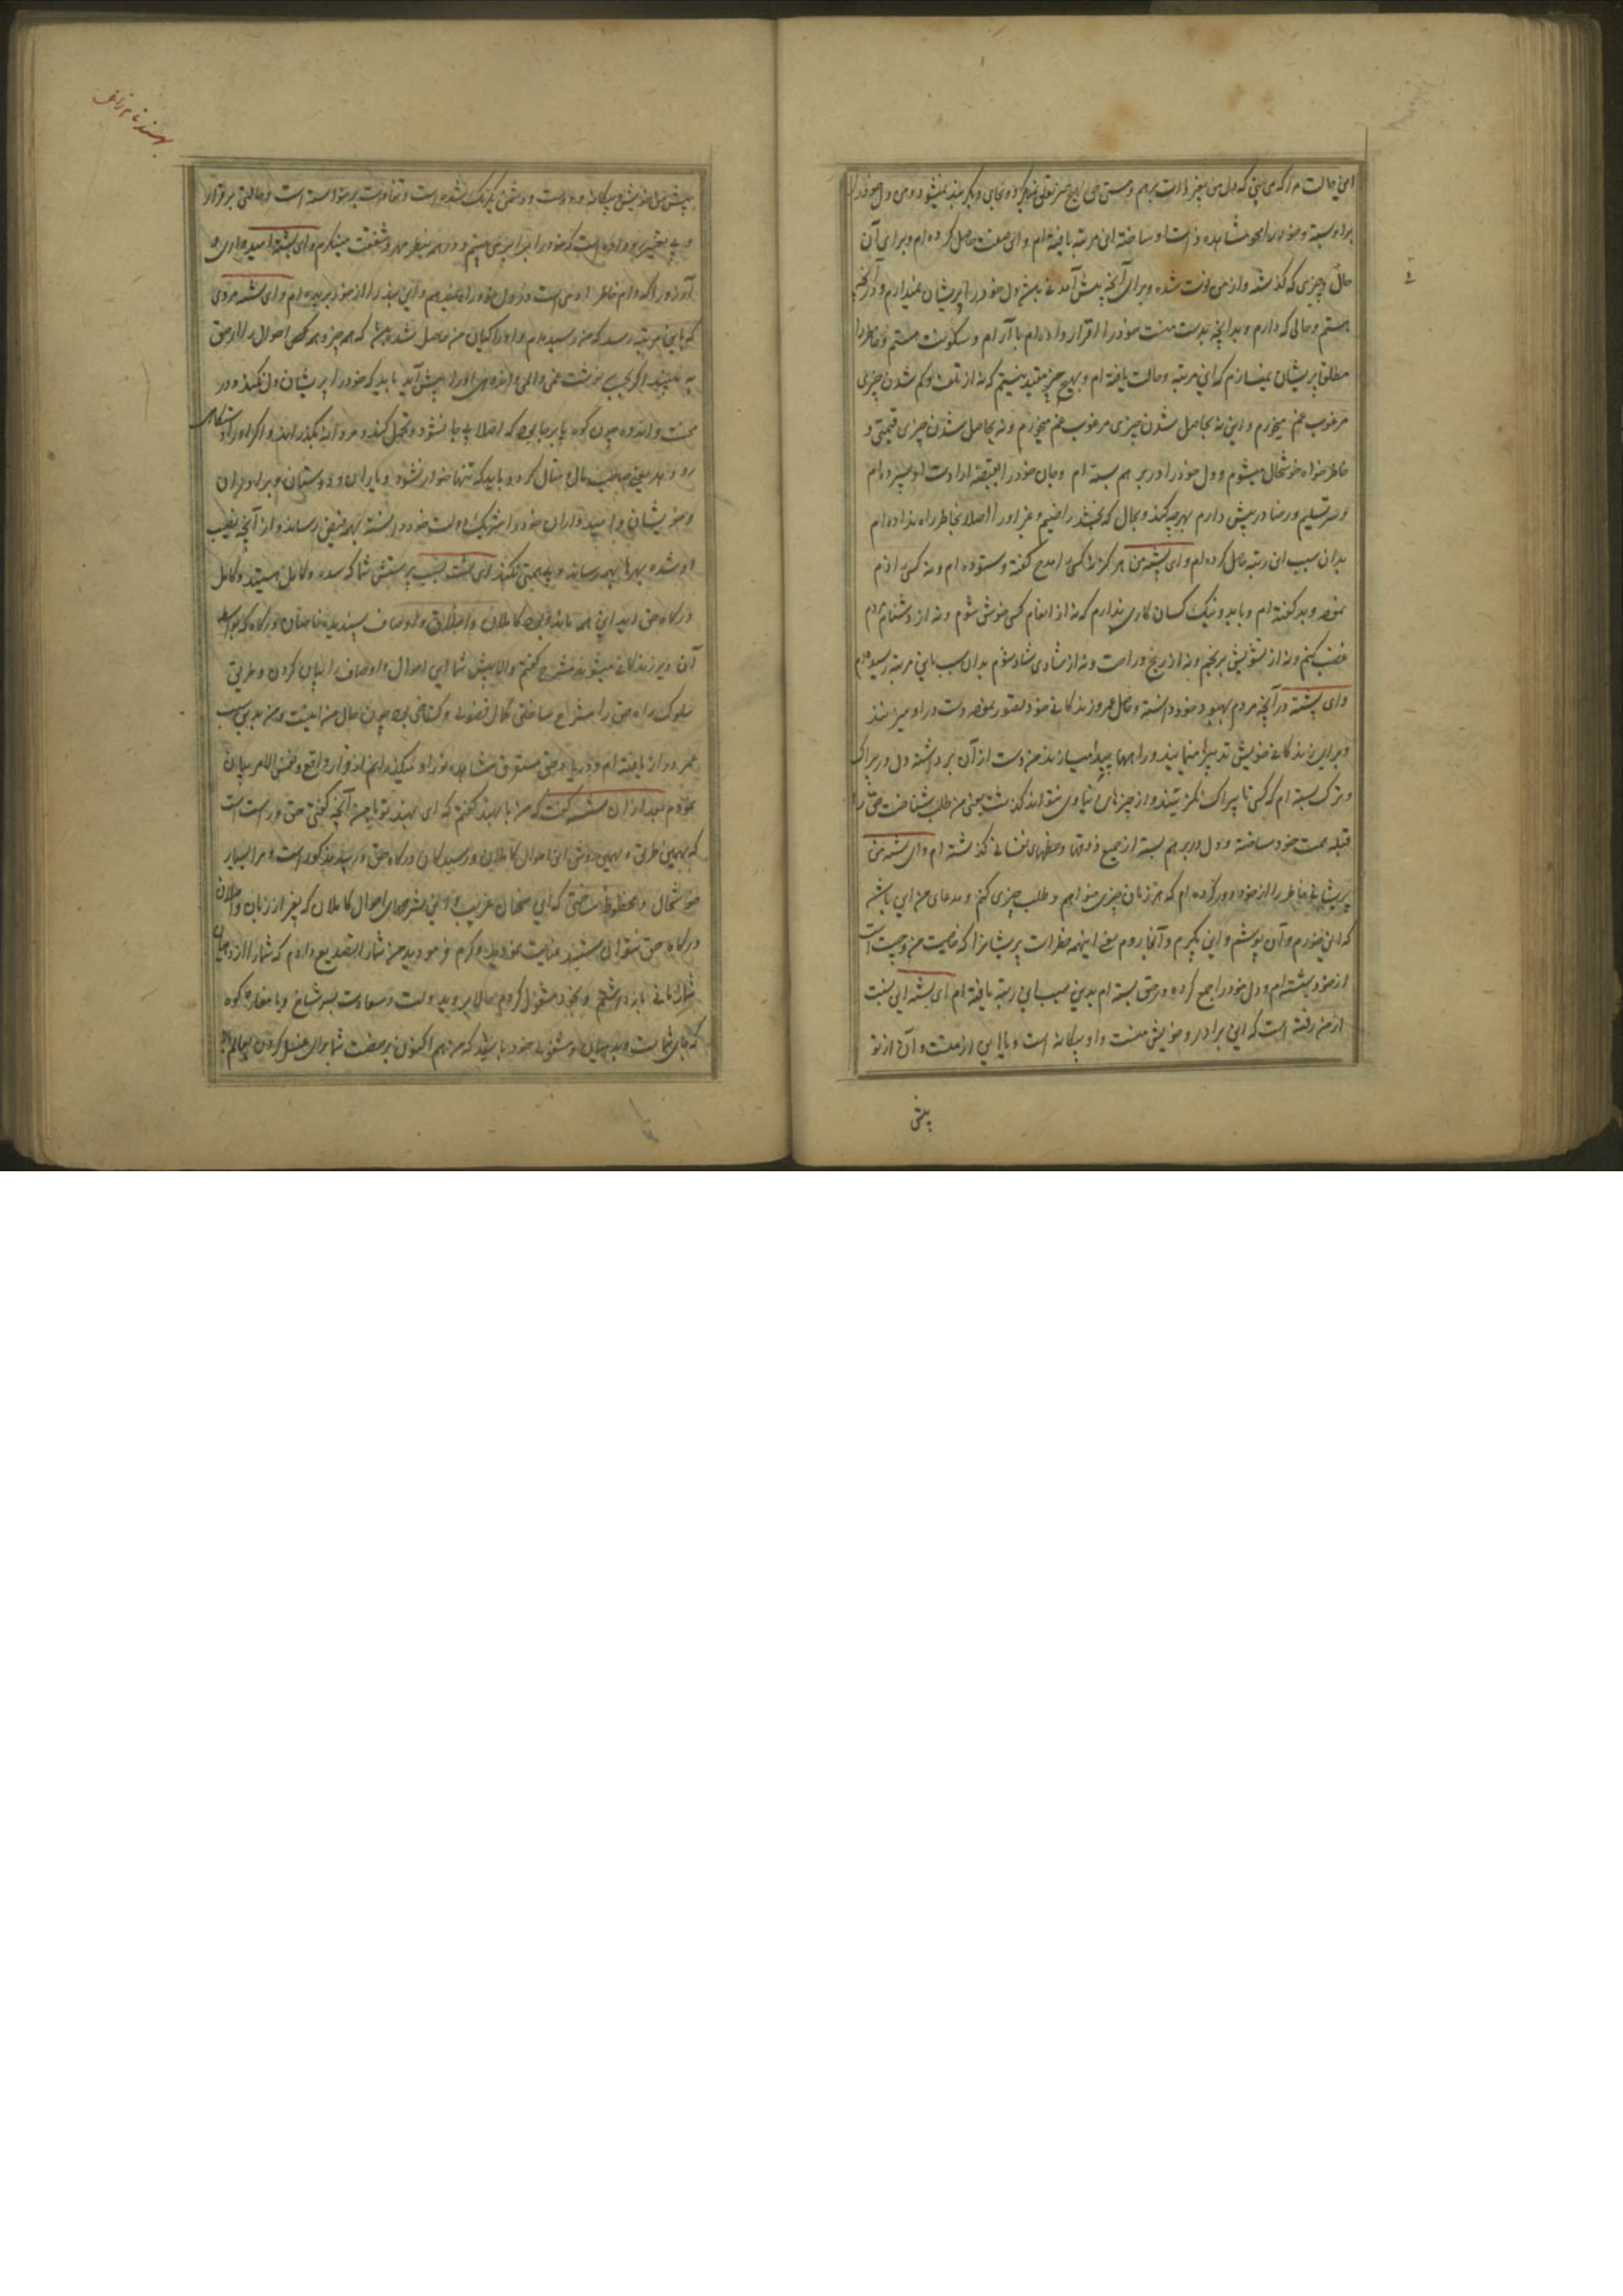 این حالت مرا که می بینی که دل من بغیر ذات برهم و هستی می بهیچ چیز تعلق نمیگیرد و بجای دیگر بند نمیشود و من دل خود را
براو بسته و خود را محو مشاهده ذات او ساخته این مرتبه یافته ام و این صفت حاصل کرده ام و برای آن
حال و چیزی که گذشته و از من فوت شده و برای آنچه پیش آمدنی باشد دل خود را پریشان نمیدارم و در آنچه
هستم و حالی که دارم و بدانچه بدست منست خود را قرار داده ام با آرام و سکونت هستم و خاطر را
مطلق پریشان نمیسازم که این مرتبه و حالت یافته ام و بهیچ چیز مقید نیستم که نه از تلف و کم شدن چیزی
مرغوب غم میخورم و این نه بحاصل شدن چیزی مرغوب غم میخورم و نه بحاصل شدن چیزی قیمتی و
خاطر خواه خوشحال میشوم و دل خود را در برهم بسته ام و جان خود را بقبضه ارادت او سپرده ام
و سر تسلیم و رضا در پیش دارم بهرچه کند و بحال که بخشد راضیم و غیر او را اصلا بخاطر راه نداده ام
بدان سبب این رتبه حاصل کرده ام و ای بششته من هرگز نه کسی را مدح گفته و ستوده ام و نه کسی را ذم
نموده و بد گفته ام و با بد و نیک کسان کاری ندارم که نه از انعام کسی خوش شوم و نه از دشنام مردم
غضب کنم و نه از تشویش برنجم و نه از رنج و راحت و نه از شادی شاد شوم بدان سبب باین مرتبه رسیده ام
و ای بششته در آنچه مردم بهبود خود دانسته و حاصل عمر و زندگانی خود تصور نموده دست در او میزنند
و برای زندگانی خویش تدبیرها مینمایند و راهها پیدا میسازند من دست از آن برداشته دل در بیراگ
و ترک بسته ام که کسی تا بیراگ نگزیند و از چیزهای دنیاوی نتواند گذشت یعنی من طلب شناخت حق را
قبله همت خود ساخته و دل در برهم بسته از جمیع ذوقها و حظهای نفسانی گذشته ام و ای بششته من
پریشانی خاطر را از خود دور کرده ام که هر زمان چیزی خواهم و طلب چیزی کنم و مدعای من این باشد
که این خورم و آن پوشم و این بگیرم و آنجا روم یعنی اینهمه خطرات پریشان را که خاصیت من و چیت است
از خود بششته ام و دل خود را جمع کرده در حق بسته ام بدین سبب این رتبه یافته ام ای بششته این نسبت
از من رفته است که این برادر و خویش منست و او بیگانه است و یا این از منست و آن از تو
پیش
بهسند نام زاغ
پیش من خویش و بیگانه و دوست و دشمن یکرنگ شده است و تفاوت برخواسته است و حالتی برقرار
و بی تغییر رو داده است که خود را برابر می بینم و در همه بنظر مهر و شفقت مینگرم و ای بششته امیدواری و
آرزو را که دام خاطر آدمی است در دل خود راه نمیدهم و این بند را از خود بریده ام و ای بششته مردی
که باین مرتبه رسد که من رسیده ام و او را گیان من حاصل شده باشد که همه چیز و همه کس احوال را از حق
به بیند اگر بحسب نوشت غمی و المی و اندوهی او را پیش آید باید که خود را پریشان دل نکند و در
محنت و اندوه چون کوه پا برجا بود که اصلا بی جا نشود و تحمل کند و مردانه بگذراند و اگر او را دستگاهی
رو دهد یعنی صاحب مال و منال گردد باید که تنها خوار نشود و یاران و دوستان و برادران
و خویشان و امیدواران خود را شریک دولت خود دانسته بهره فیض رساند و از آنچه نصیب
او شده بهرها بهمه رساند و بی همتی نکند ای بششته بحسب پرسش شما که سده و کامل هستید و کامل
درگاه حق اید این همه باشد و طریقه کاملان و اخلاق و اوصاف پسندیده خاصان درگاه که بواسطه
آن دیر زندگانی میشوند مشرح گفتم و الا پیش شما این احوال و اوصاف را بیان کردن و طریق
سلوک راه حق را مشرح ساختن کمال فضولی و گستاخی بود چون حال من اینست و من بدین سبب
عمر دراز یافته ام و در یاد حق مستغرق مشاهده نور او میکنم و این از قرار واقع و نفس الامر بیان
نمودم بعد از آن بششته گفت که من با بهسند گفتم که ای بهسند تو با من آنچه گفتی حق و راست است
که بهمین طریق و بهمین روش این احوال کاملان و رسیدگان درگاه حق در بید مذکور است و مرا بسیار
خوشحال و محظوظ ساختی که این سخنان غریب و این شرحهای احوال کاملان که بغیر از زبان واصلان
درگاه حق نتوان شنید عنایت نمودید و کرم فرمودید من شما را تصدیع دادم که شما را از دهیان
زمانی باز داشتم و بخود مشغول کردم حالا بروید بدولت و سعادت بسر شاخ و یا مغاره کوه
که جای شما است و بدهیان و مشغولی خود باشید که من هم اکنون برخصت شما برای غسل کردن بعالم بالا